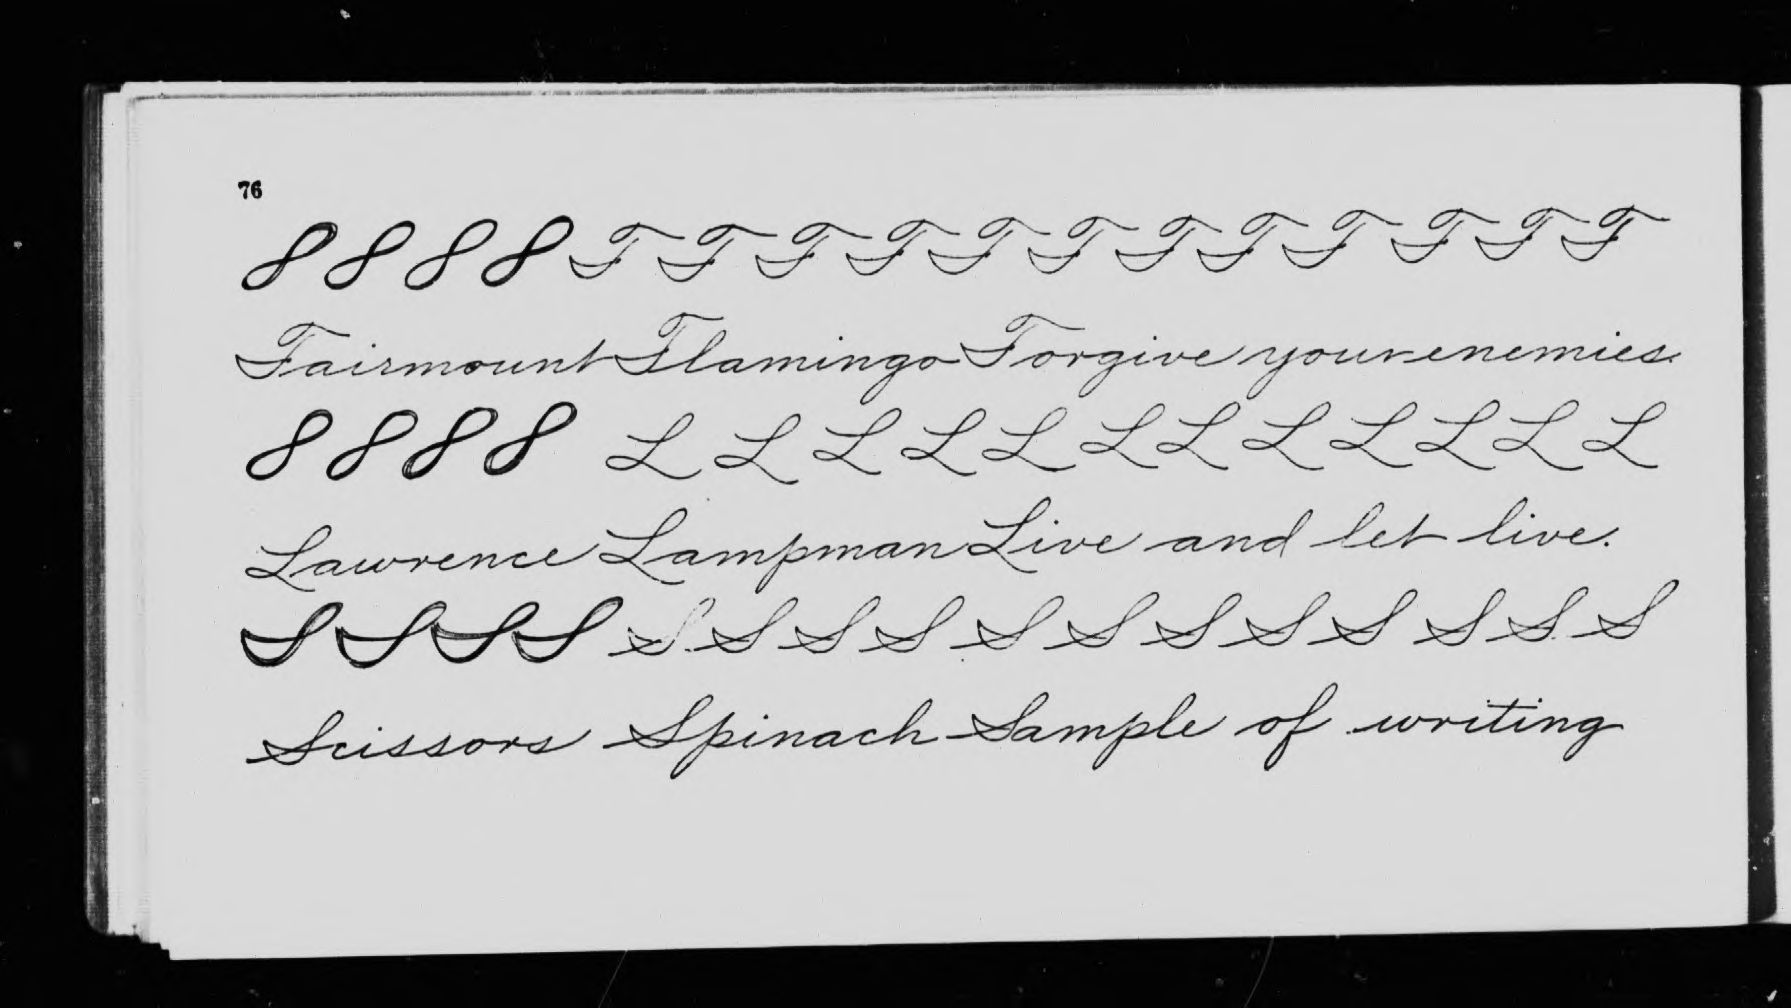 76
8 8 8 8 F F F F F F F F F F F F
Fairmount Flamingo Forgive your enemies.
8 8 8 8 L L L L L L L L L L L L
Lawrence Lampman Live and let live.
S S S S S S S S S S S S S S S S
Scissors Spinach Sample of writing